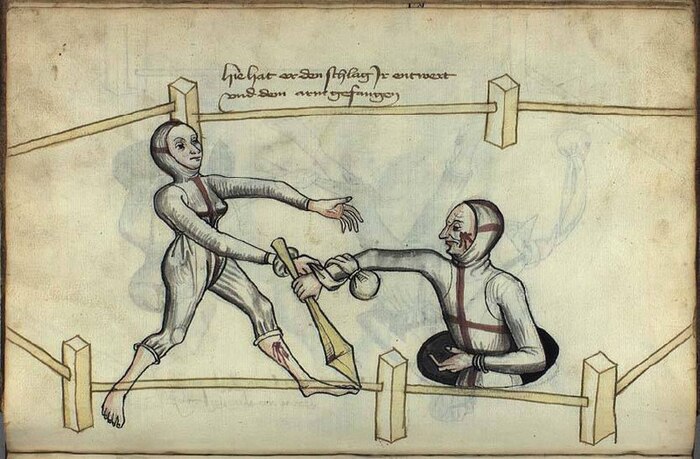 hie hat er den schlag Ir entwert
vnd den arm gefangen